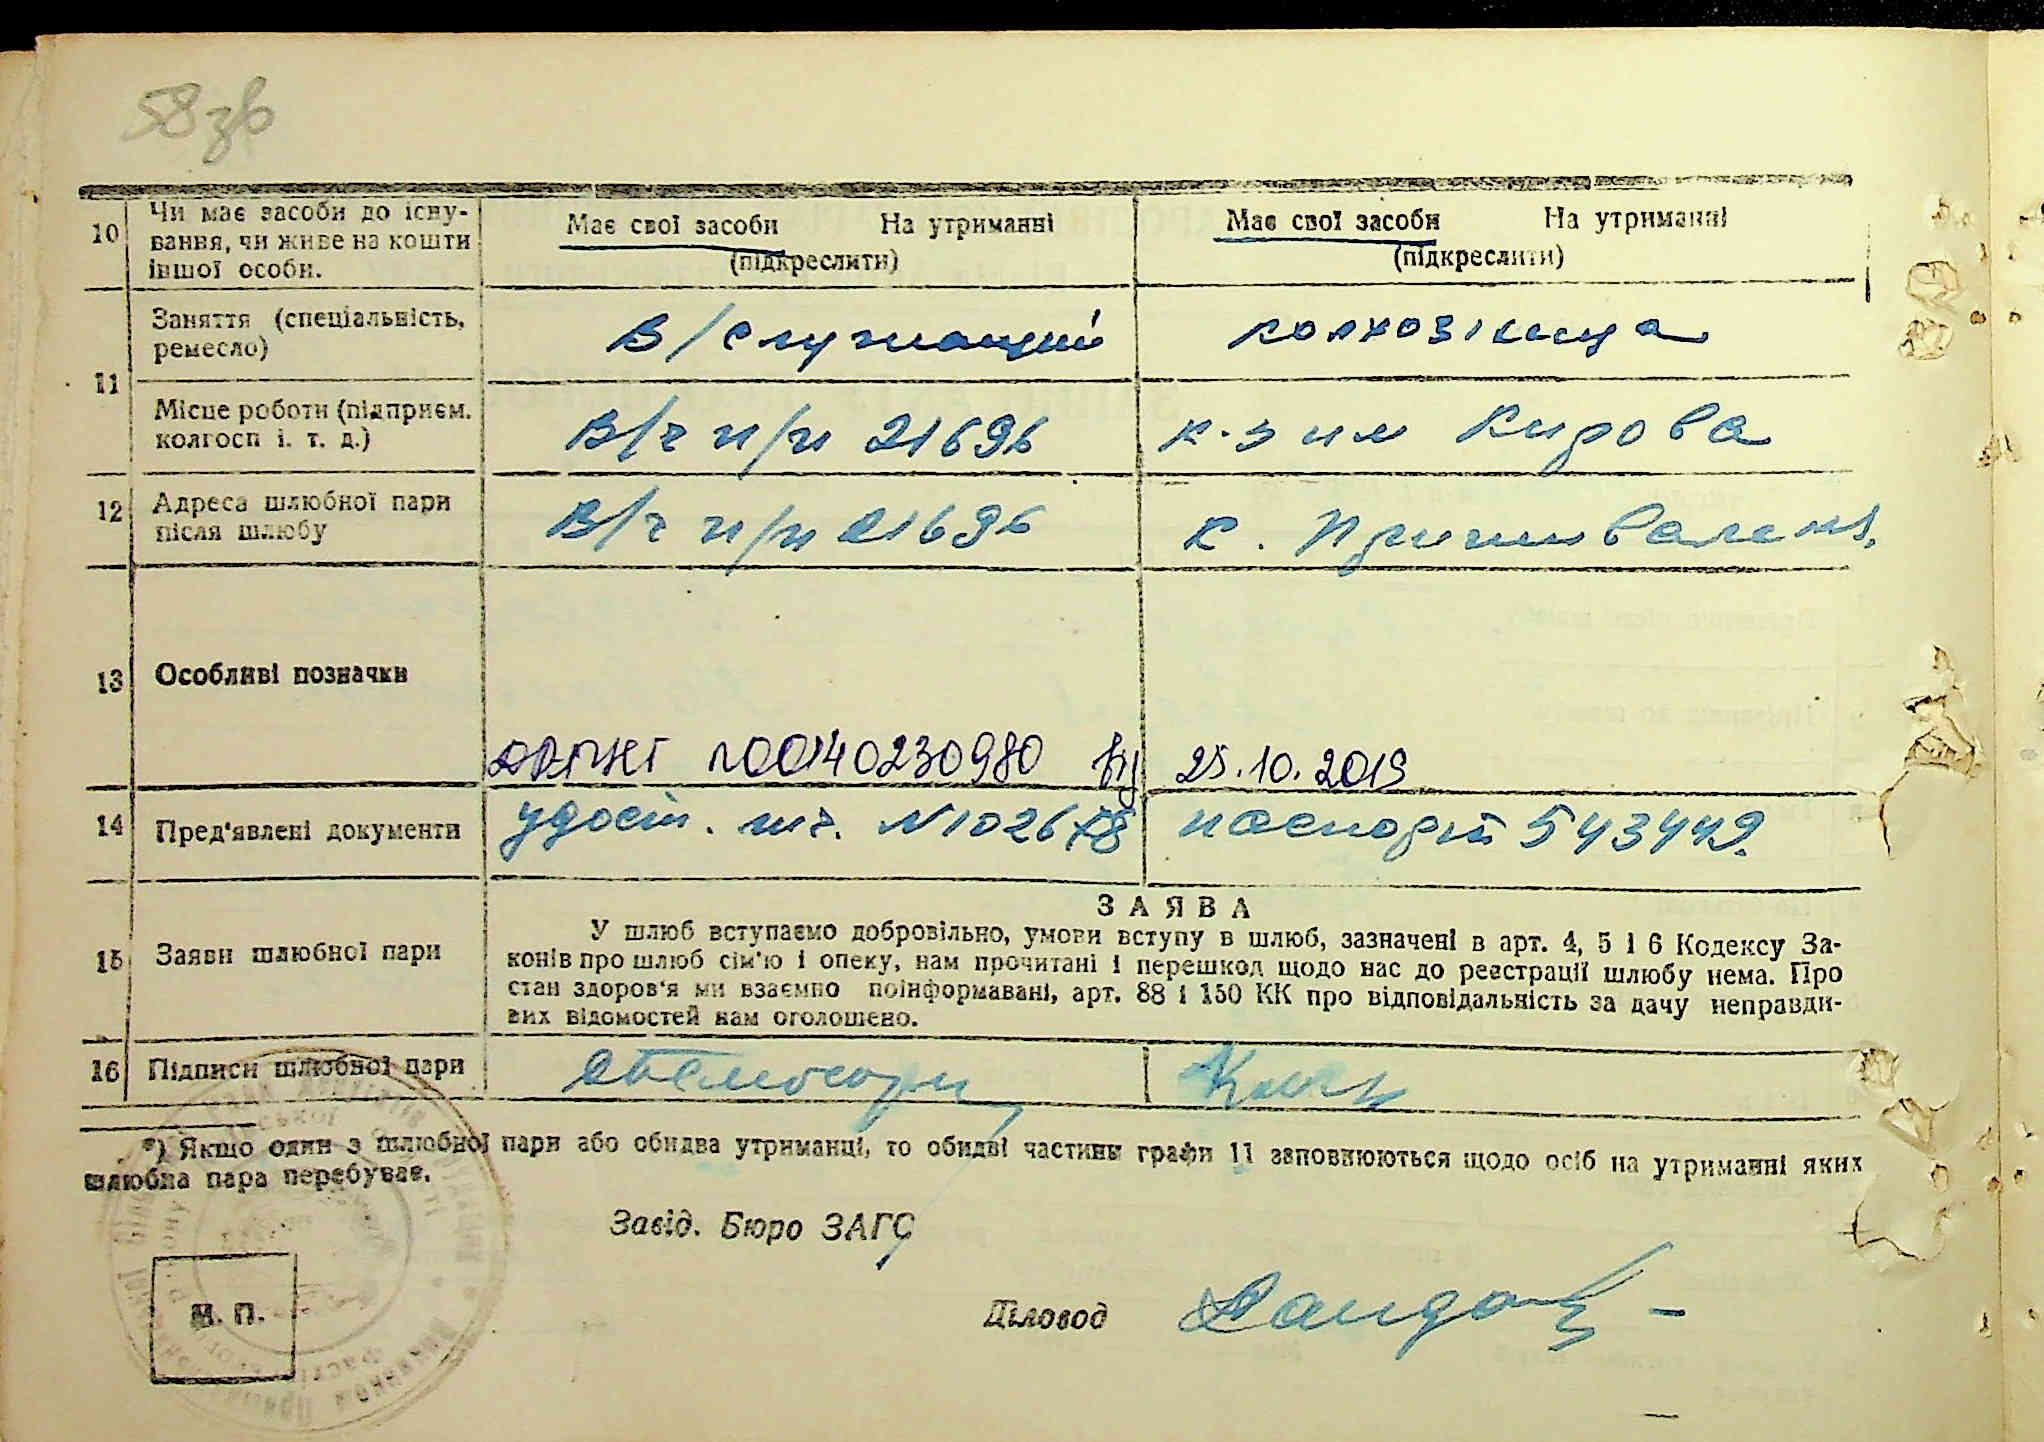 58зв
10
Чи має засоби до існу-
вання, чи живе на кошти
іншої особи.
Має свої засоби На утриманні
(підкреслити)
Має свої засоби На утриманні
(підкреслити)
11
Заняття (спеціальність,
ремесло)
В/служащий
колхозниця
Місце роботи (підприєм.
колгосп і. т. д.)
В/ч п/п 21696
к-з им Кирова
12
Адреса шлюбної пари
після шлюбу
В/ч п/п 21696
13
Особливі позначки
N00140230980
25.10.2019
14
Пред'явлені документи
удост.
паспорт 543449.
15
Заяви шлюбної пари
ЗАЯВА
У шлюб вступаємо добровільно, умови вступу в шлюб, зазначені в арт. 4, 5 і 6 Кодексу За-
конів про шлюб сім'ю і опеку, нам прочитані і перешкод щодо нас до реєстрації шлюбу нема. Про
стан здоров'я ми взаємно поінформавані, арт. 88 і 150 КК про відповідальність за дачу неправди-
вих відомостей нам оголошено.
16
Підписи шлюбної пари
*) Якщо один з шлюбної пари або обидва утриманці, то обидві частини графи 11 заповнюються щодо осіб на утриманні яких
шлюбна пара перебуває.
Завід. Бюро ЗАГС
Діловод
М. П.